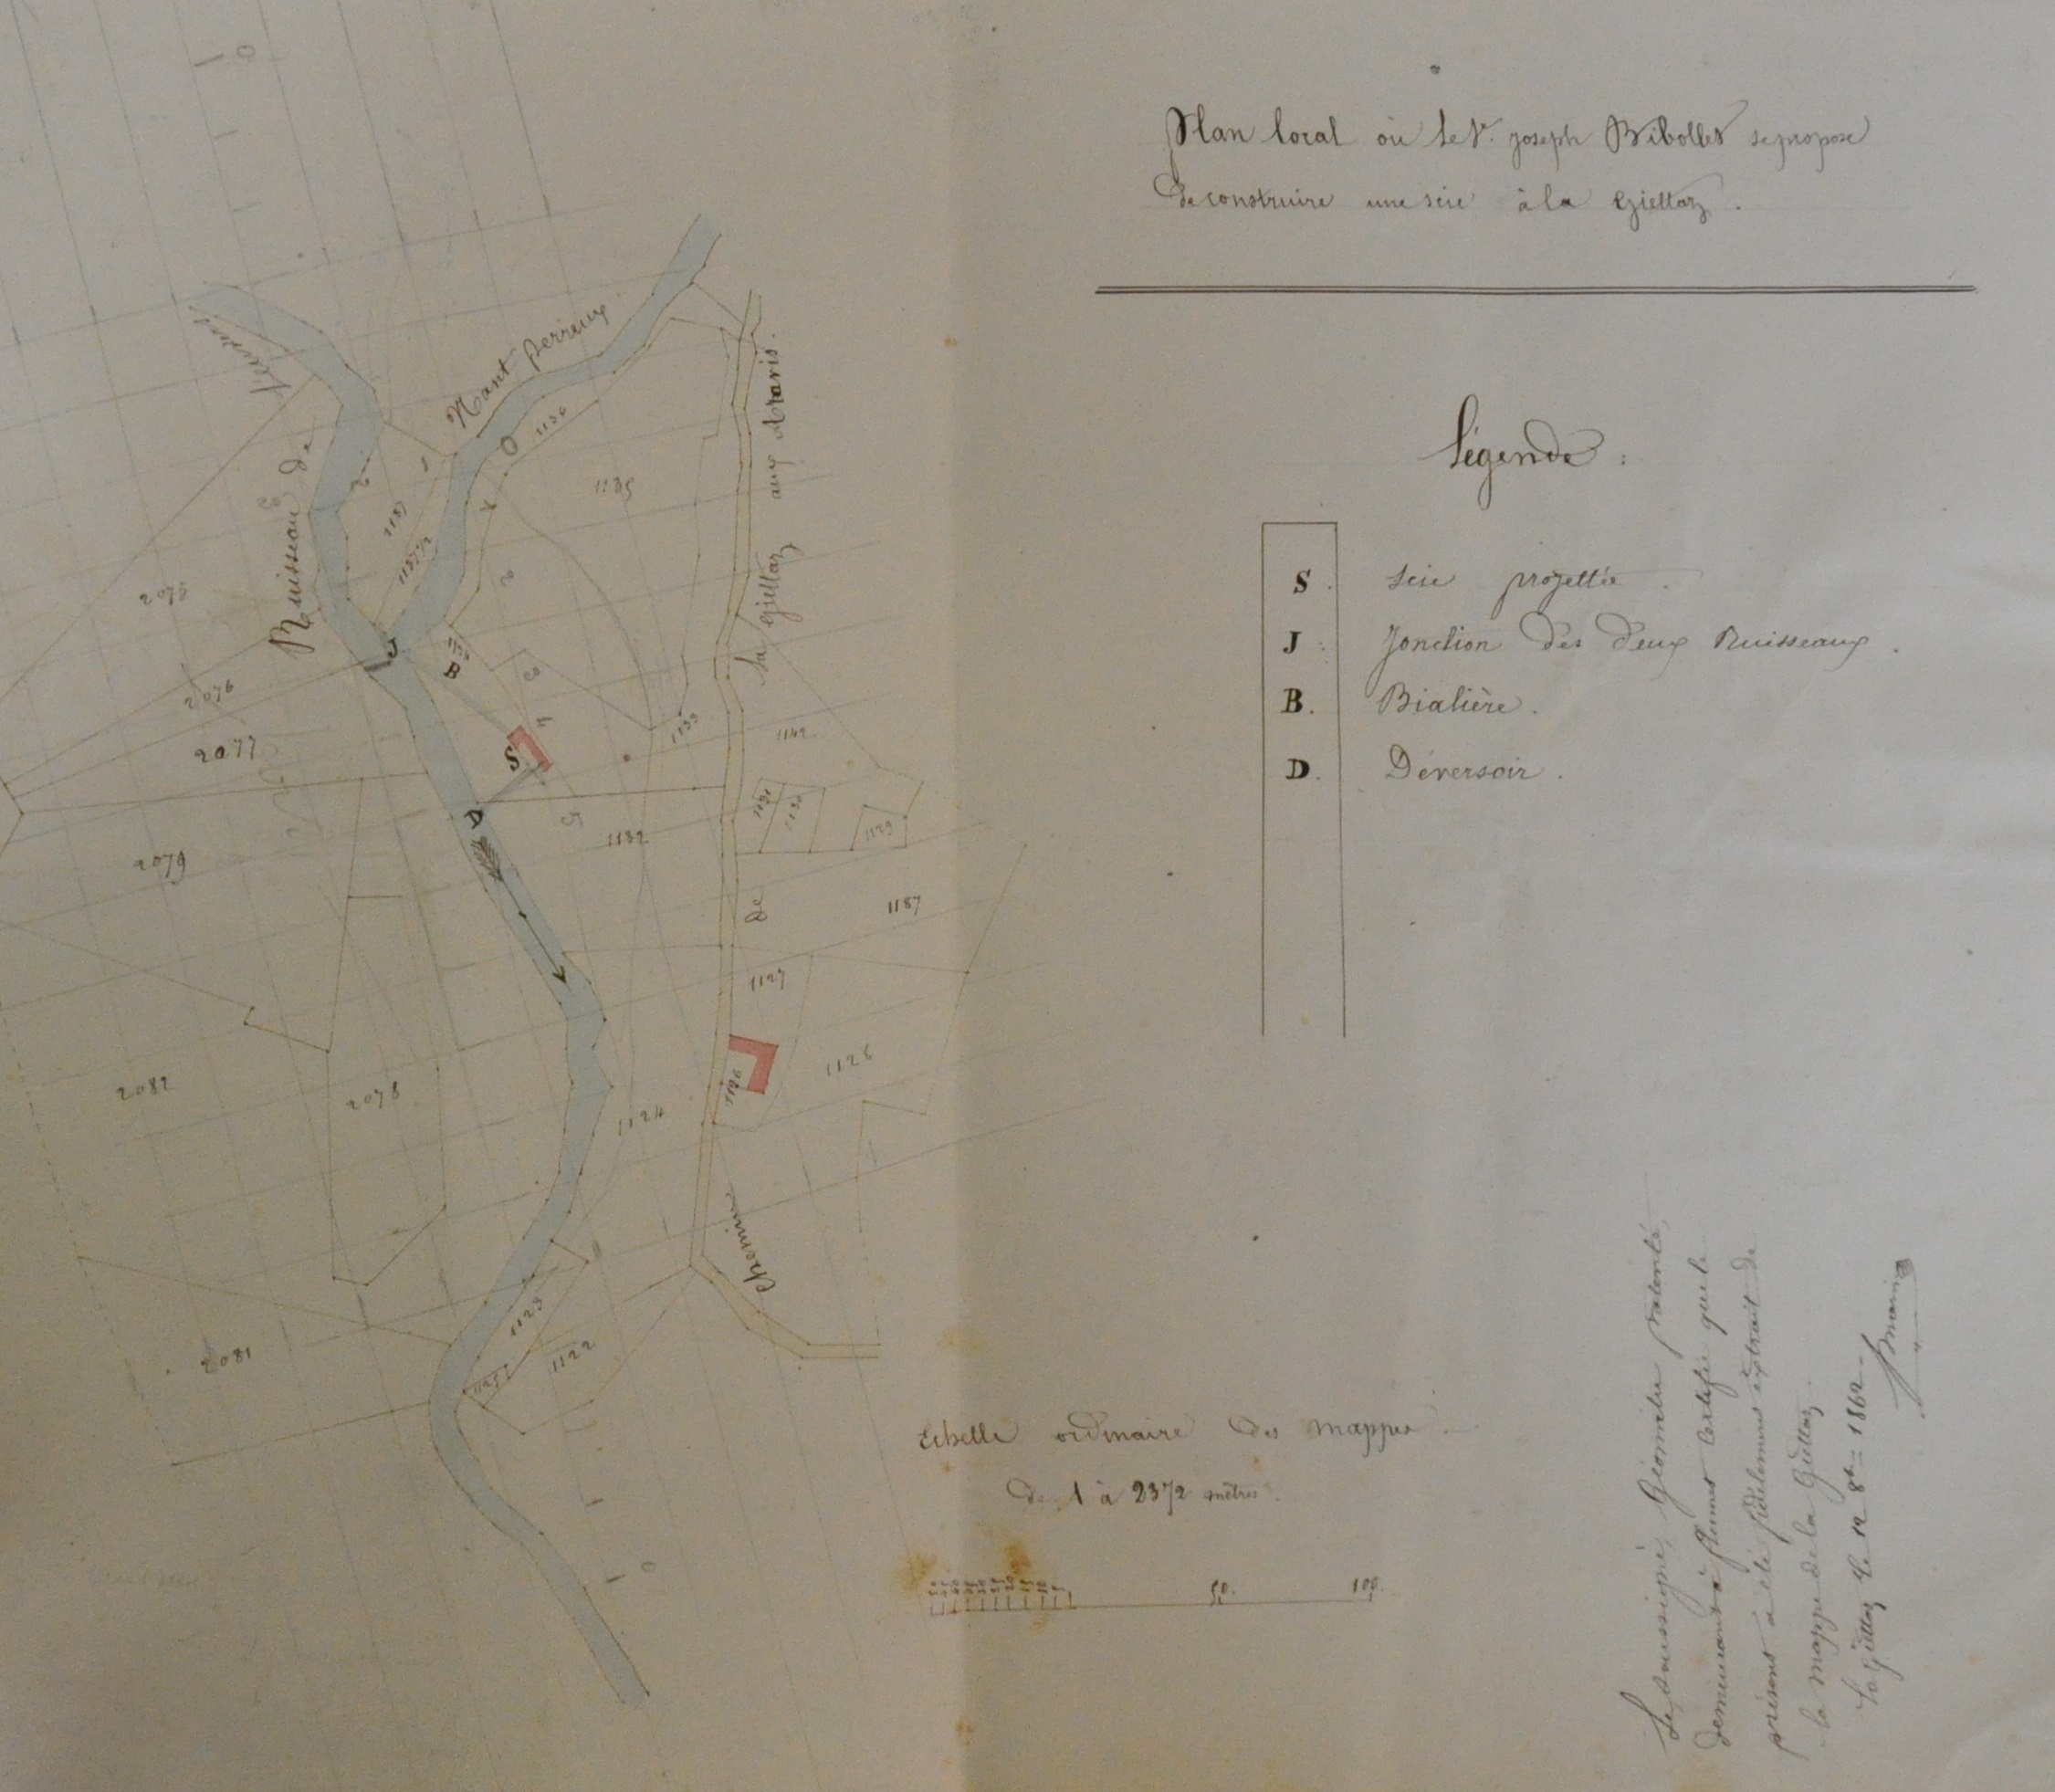 Plan local où le Sr. joseph Bibollet se propose
de construire une scie à la Giettaz.
Légende :
S. scie projettée.
J. Jonction des deux Ruisseaux.
B. Bialière.
D. Déversoir.
Ruisseau de
Nant perraux
Chemin de la Giettaz aux Aravis.
1136
1135
1137
1137 1/2
1134
1133
1142
1131
1130
1129
1132
1187
1127
1126
1124
1123
1122
2075
2076
2077
2079
2082
2078
2081
J
B
S
D
1
2
2
3
4
5
Echelle ordinaire des mappes
de 1 à 2372 mètres.
50. 100.
Le soussigné, Géomètre patenté,
demeurant à flumet certifie que le
présent a été fidèlement extrait de
la mappe de la Giettaz.
la giettaz le 12 8bre 1862